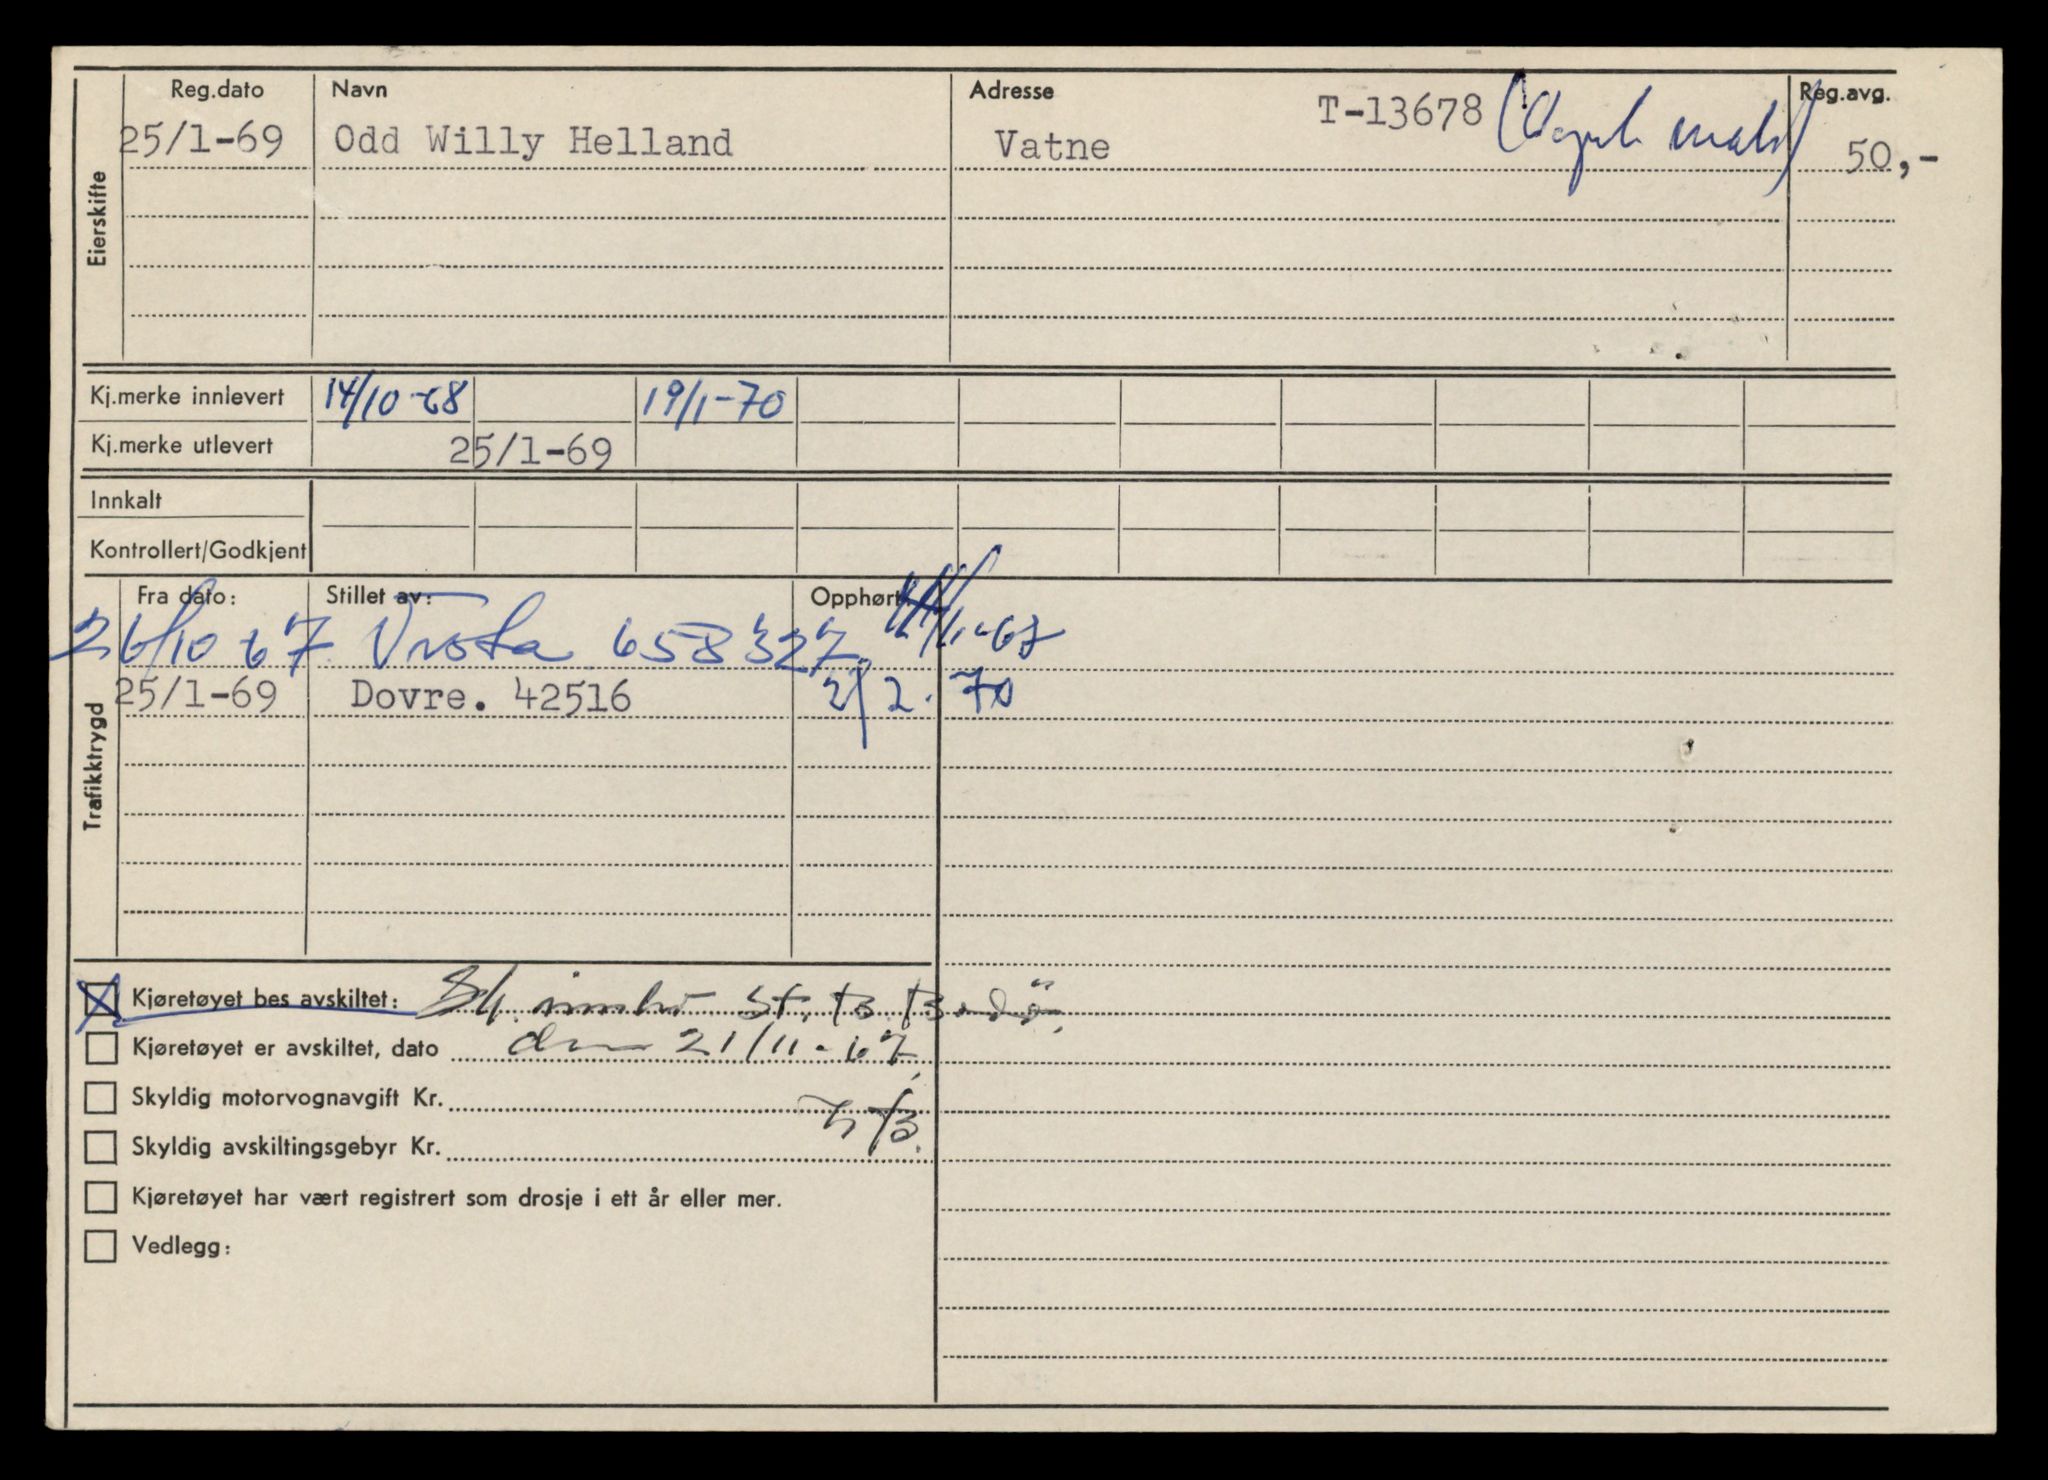 Eierskifte
Reg.dato Navn Adresse Reg.avg.
25/1-69 Odd Willy Helland Vatne T-13678 50,-
Kj.merke innlevert 14/10-68 19/1-70
Kj.merke utlevert 25/1-69
Innkalt
Kontrollert/Godkjent
Trafikktrygd
Fra dato: Stillet av: Opphørt
26/10 67 658327
25/1-69 Dovre. 42516 2/2.70
Kjøretøyet bes avskiltet:
Kjøretøyet er avskiltet, dato 21/11-67
Skyldig motorvognavgift Kr.
Skyldig avskiltingsgebyr Kr.
Kjøretøyet har vært registrert som drosje i ett år eller mer.
Vedlegg: